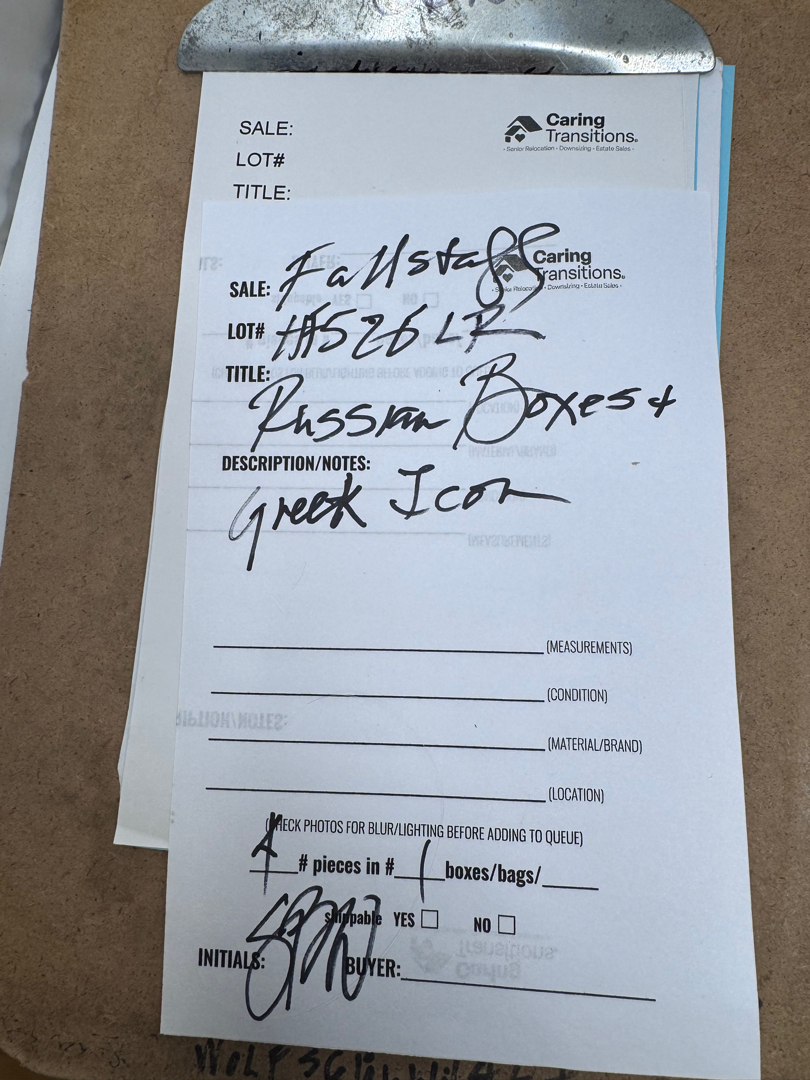 SALE:
LOT#
TITLE:
Caring
Transitions.
• Senior Relocation • Downsizing • Estate Sales •
SALE: Fallstaff
Caring
Transitions.
• Senior Relocation • Downsizing • Estate Sales •
LOT# #526 LR
TITLE:
Russian Boxes +
DESCRIPTION/NOTES:
Greek Icon
(MEASUREMENTS)
(CONDITION)
(MATERIAL/BRAND)
(LOCATION)
(CHECK PHOTOS FOR BLUR/LIGHTING BEFORE ADDING TO QUEUE)
4 # pieces in # 1 boxes/bags/
shippable YES NO
INITIALS: BUYER: